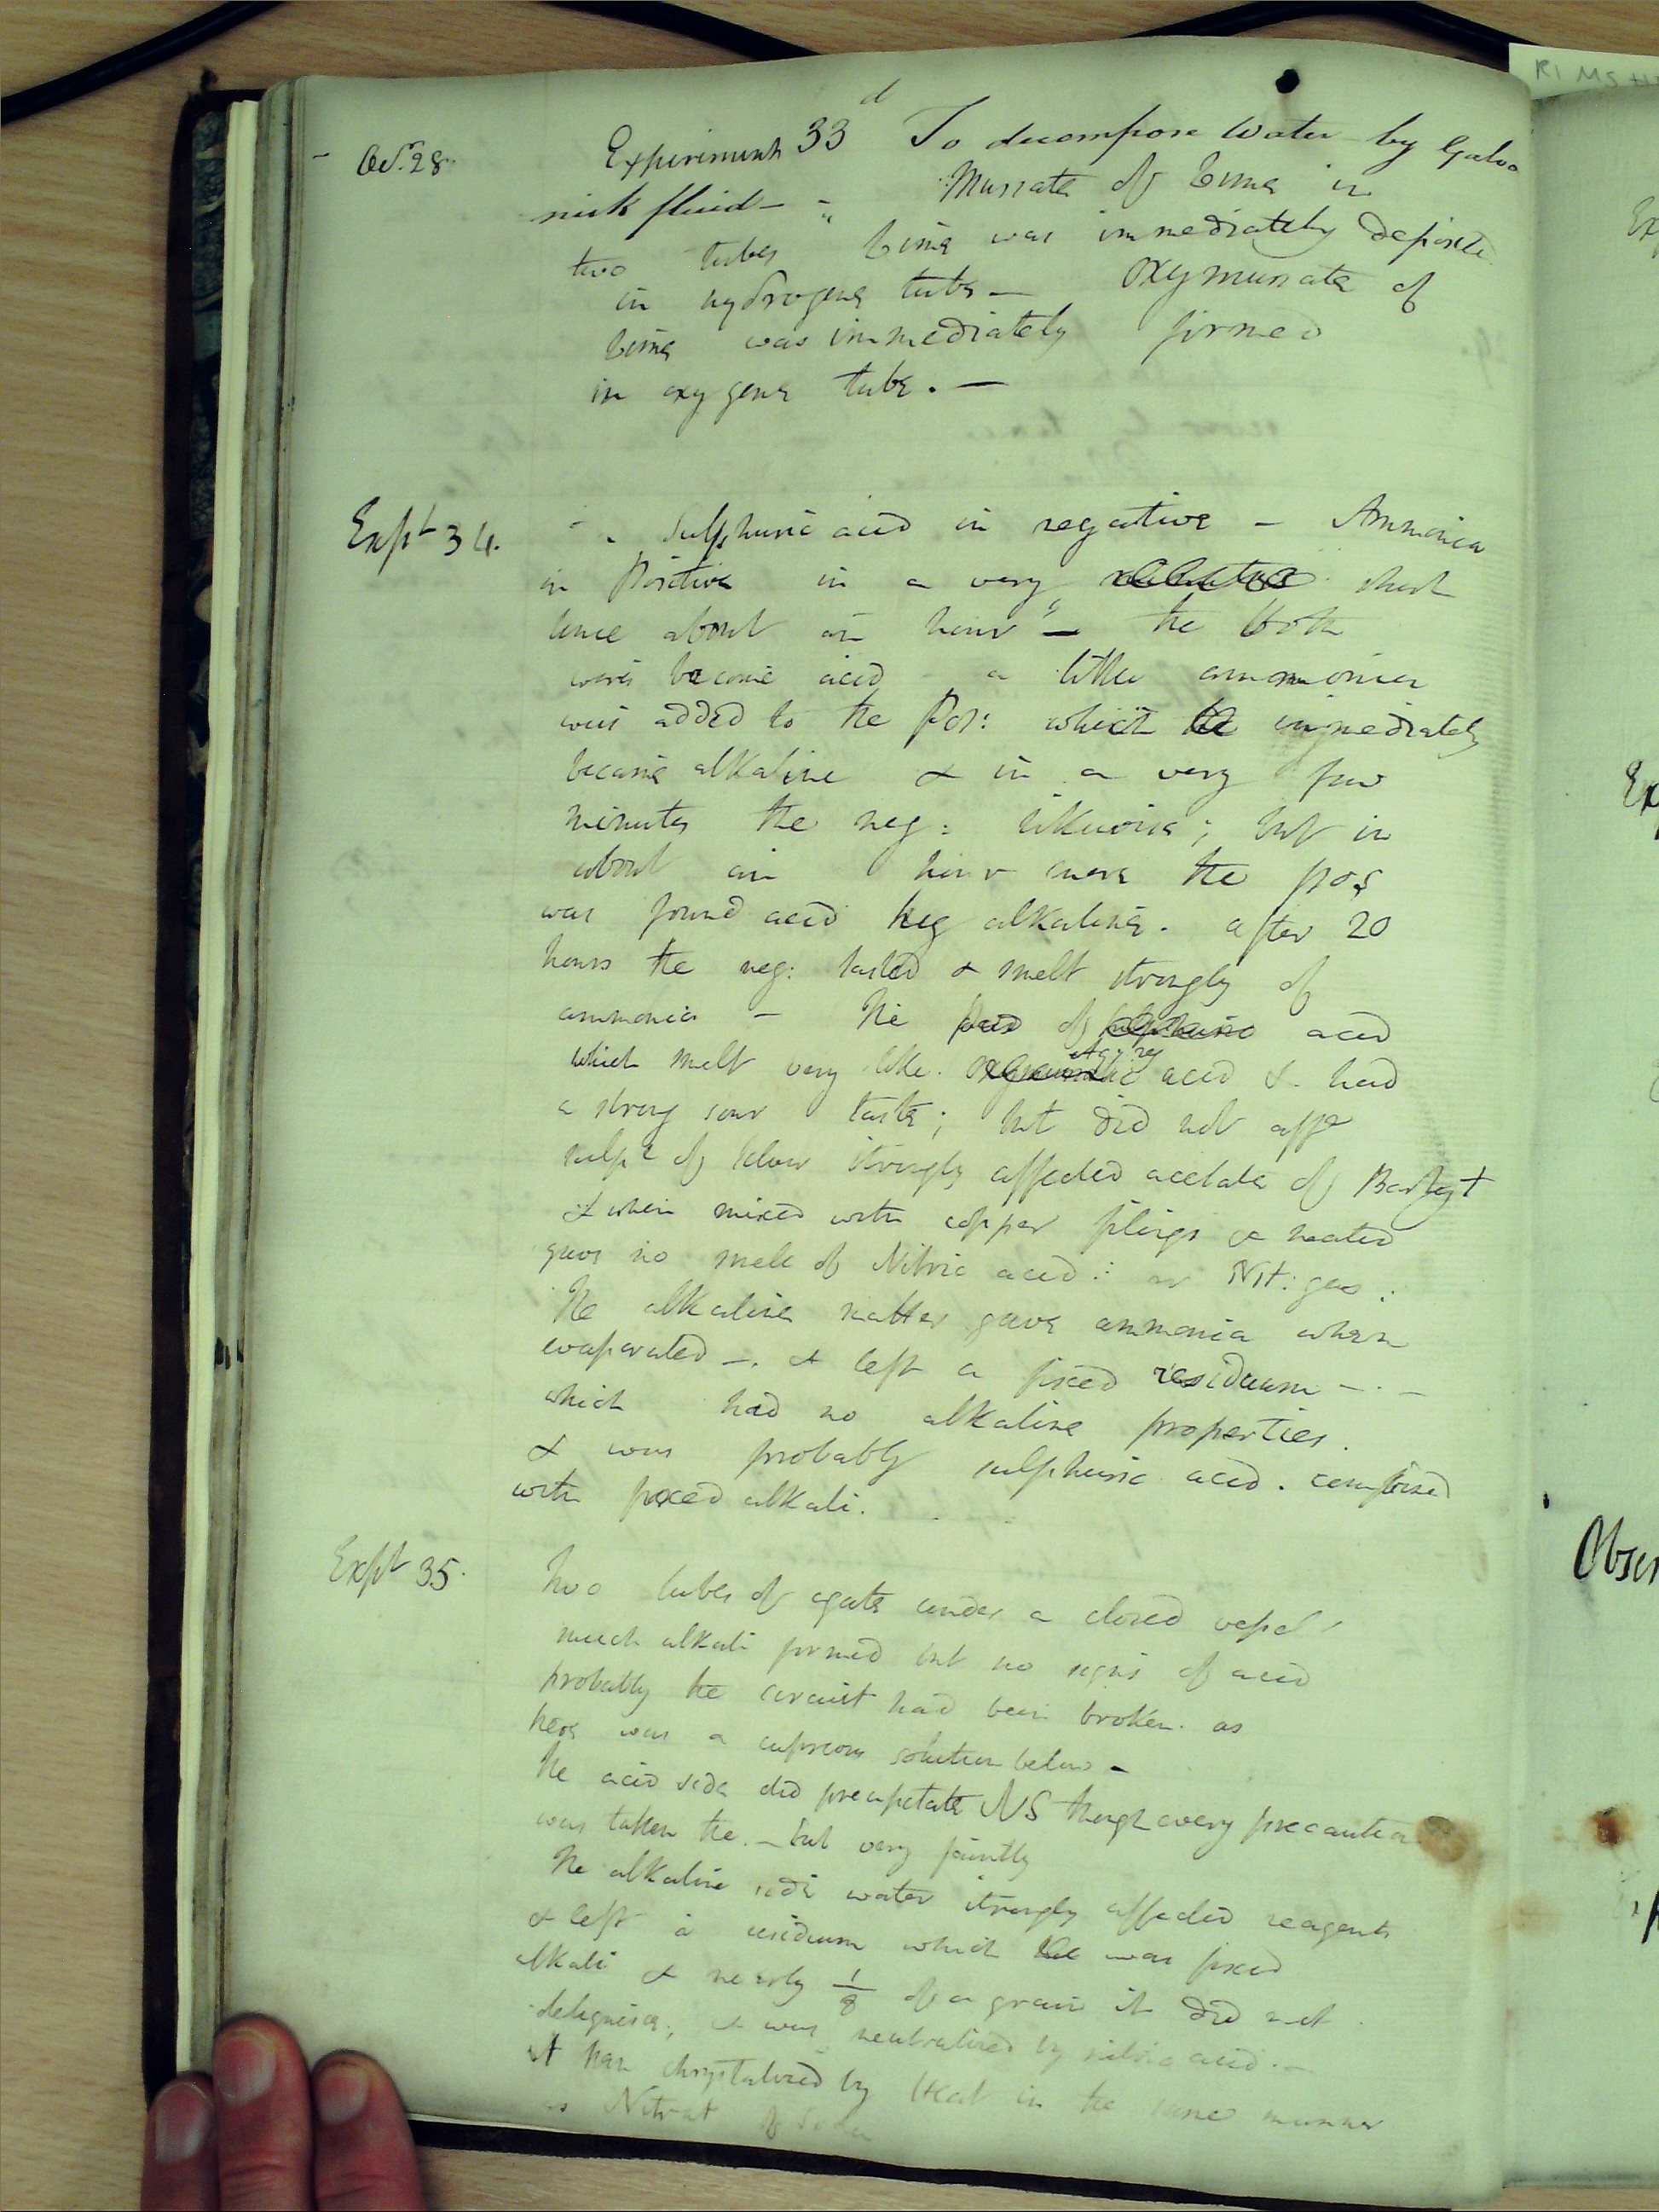 RI MS H
Oct. 28. Experiment 33d To decompose Water by Galva
nick fluid - Muriate of Lime in
two tubes lime was immediately deposited
in hydrogene tube - Oxymuriate of
lime was immediately formed
in oxygene tube. -
Expt 34. Sulphuric acid in negative - Ammonia
in Positive in a very short
time about an hour - the both
were become acid a little ammonia
was added to the Pos: which immediately
became alkaline & in a very few
minutes the neg: likewise; but in
about an hour more the pos
was found acid Neg alkaline. after 20
hours the neg: tasted & smelt strongly of
ammonia - The of acid
which smelt very like acid & had
a strong sour taste; but did not aff
sulpt of silver strongly affected acetate of Baryt
& when mixed with copper filings & heated
gave no smell of Nitric acid: or Nit: gas:
The alkaline matter gave ammonia when
evaporated -. & left a fixed residuum - . -
which had no alkaline properties.
& was probably sulphuric acid. combined
with fixed alkali.
Expt 35. Two tubes of agate under a closed vessel
much alkali formed but no signs of acid
probably the circuit had been broken. as
there was a cupreous solution below -
The acid side did precipitate NS though every precaution
was taken the. - but very faintly
The alkaline side water strongly affected reagents
& left a residuum which was fixed
alkali & nearly 1/8 of a grain it did not
deliquesce; & was neutralized by nitric acid. -
It then chrystalized by Heat in the same manner
as Nitrat of Soda
Ex
Ex
Obser